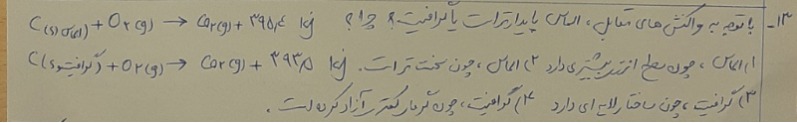 ۱۳- با توجه به واکنش های مقابل، الماس پایدارتر است یا گرافیت؟ چرا؟ C(s, الماس) + O₂(g) → CO₂(g) + ۳۹۵,۴ kj
۱) الماس، چون سطح انرژی بیشتری دارد ۲) الماس، چون سخت تر است. C(s, گرافیت) + O₂(g) → CO₂(g) + ۳۹۳,۵ kj
۳) گرافیت، چون ساختار لایه ای دارد ۴) گرافیت، چون گرمای کمتری آزاد کرده است.